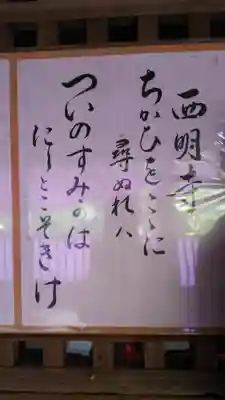 西明寺
ちかひをはこゝに
尋ぬれハ
ついのすみかは
にしとこそきけ